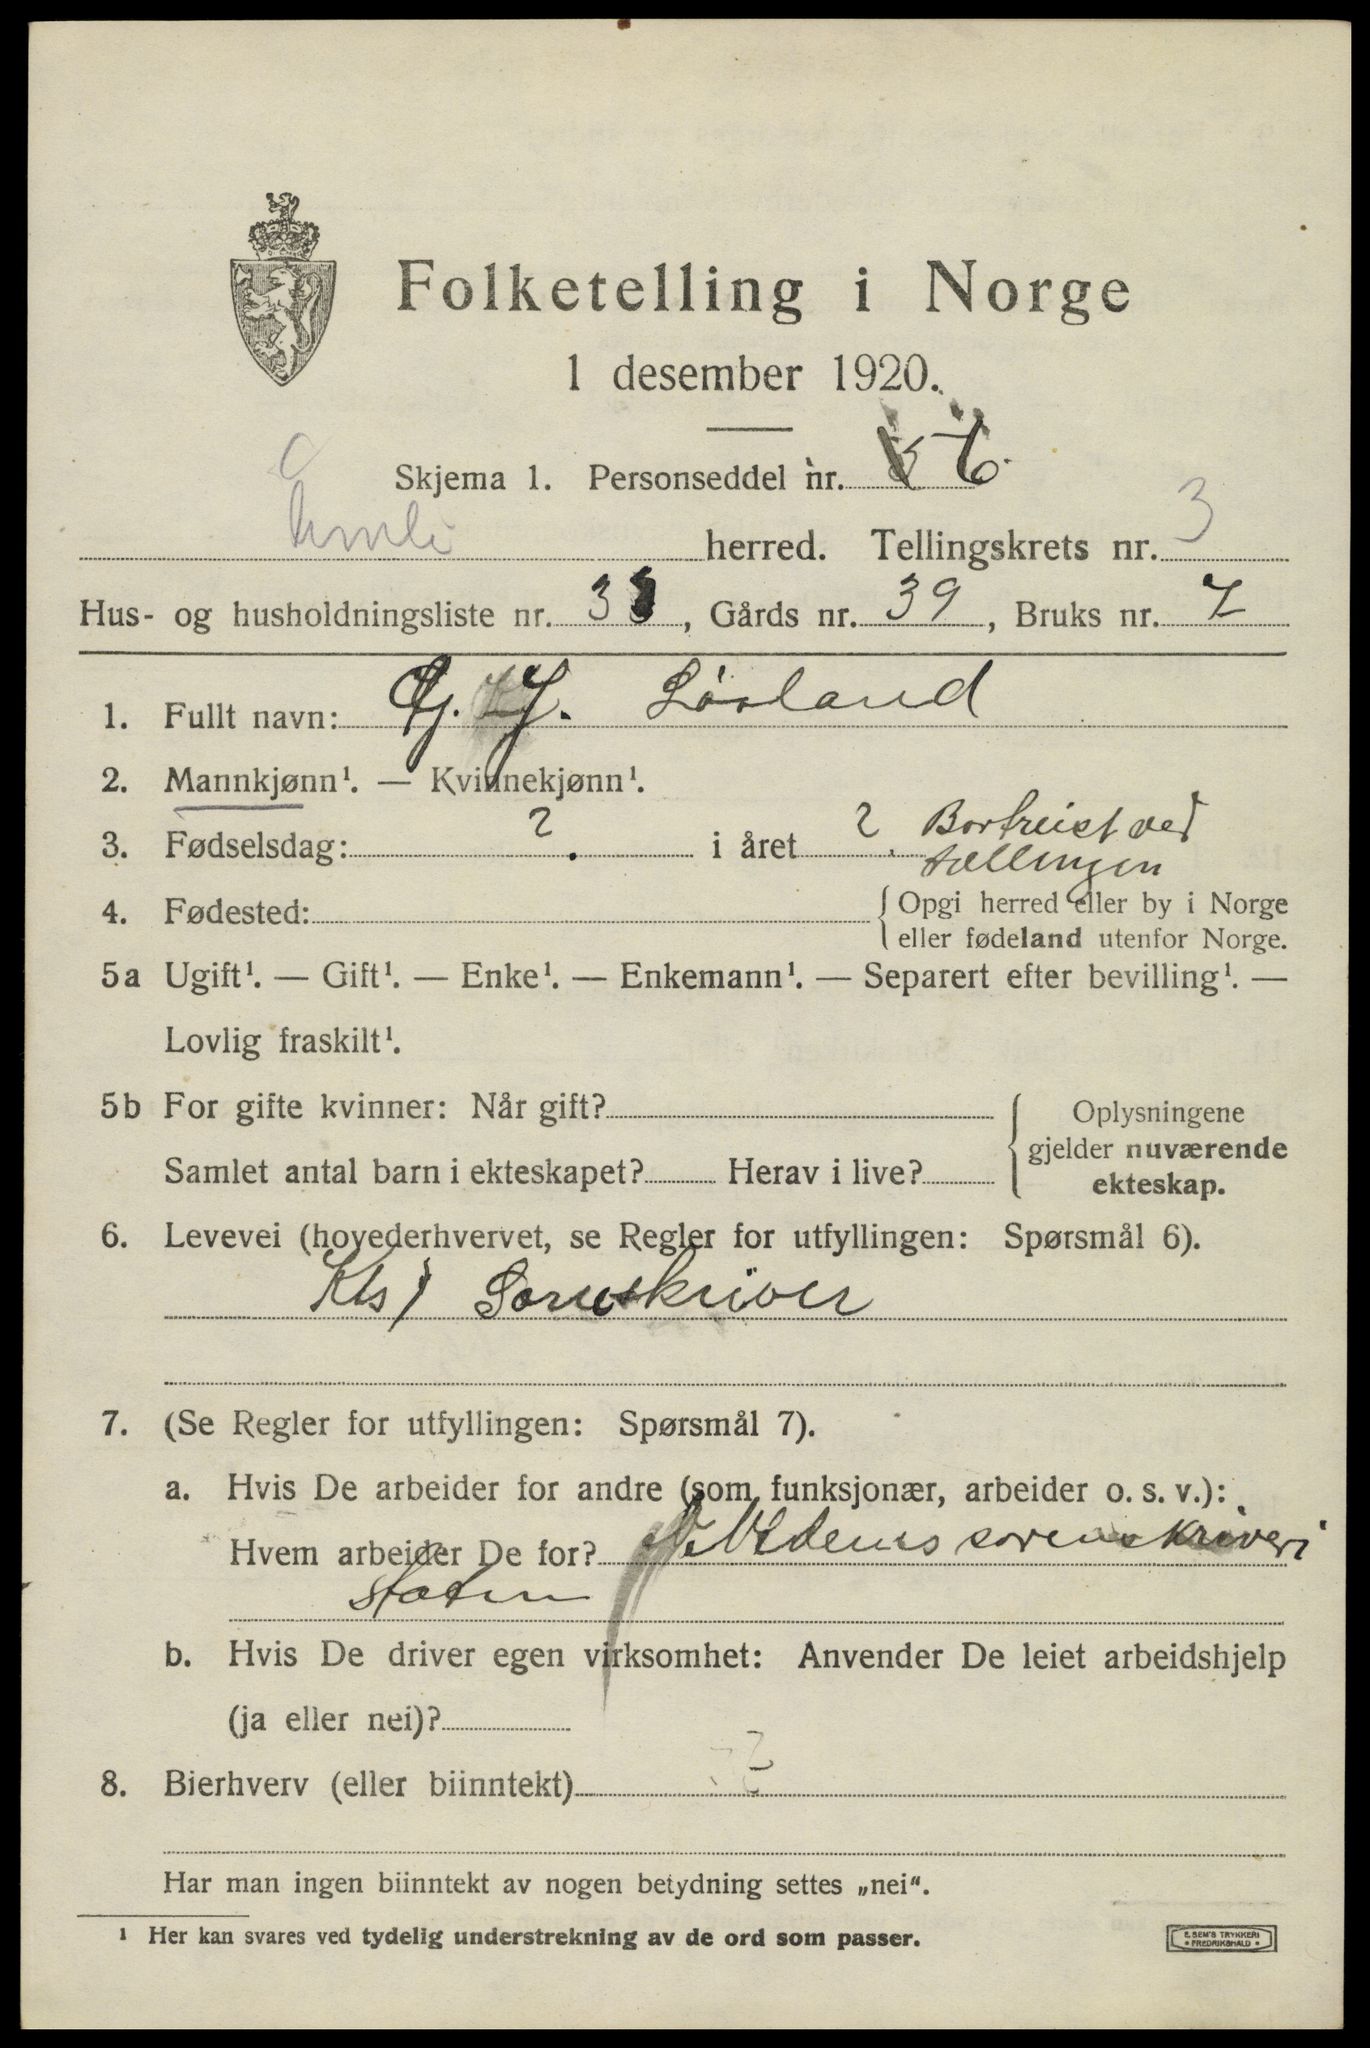 Folketelling i Norge
1 desember 1920.
Skjema 1. Personseddel nr. 6.
herred. Tellingskrets nr. 3
Hus- og husholdningsliste nr. 33, Gårds nr. 39, Bruks nr. 7
1. Fullt navn: G. J. Løvland
2. Mannkjønn¹. — Kvinnekjønn¹.
3. Fødselsdag: ? i året ? Bortreist ved
tællingen
4. Fødested: {Opgi herred eller by i Norge
eller fødeland utenfor Norge.
5a Ugift¹. — Gift¹. — Enke¹. — Enkemann¹. — Separert efter bevilling¹. —
Lovlig fraskilt¹.
5b For gifte kvinner: Når gift? { Oplysningene
gjelder nuværende
Samlet antal barn i ekteskapet? Herav i live?
ekteskap.
6. Levevei (hovederhvervet, se Regler for utfyllingen: Spørsmål 6).
Kst Sorenskriver
7. (Se Regler for utfyllingen: Spørsmål 7).
a. Hvis De arbeider for andre (som funksjonær, arbeider o. s. v.):
Hvem arbeider De for? N. Nedenes sorenskriveri
staten
b. Hvis De driver egen virksomhet: Anvender De leiet arbeidshjelp
(ja eller nei)?
8. Bierhverv (eller biinntekt) ?
Har man ingen biinntekt av nogen betydning settes „nei“.
¹ Her kan svares ved tydelig understrekning av de ord som passer.
E. SEM'S TRYKKERI
• FREDRIKSHALD •